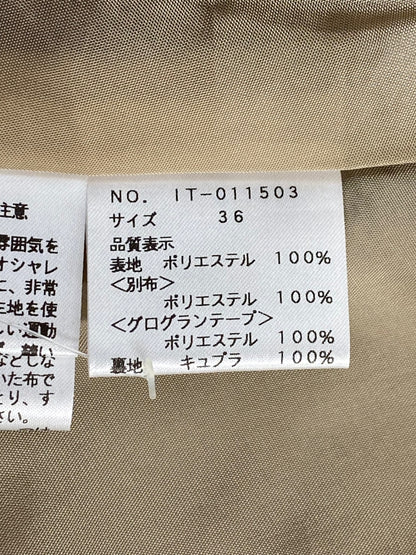 注意
雰囲気を
オシャレ
に、非常
生地を使
しい運動
などしな
いた布で
とり、す
さい。
NO. IT-011503
サイズ 36
品質表示
表地 ポリエステル 100%
<別布>
ポリエステル 100%
<グログランテープ>
ポリエステル 100%
裏地 キュプラ 100%